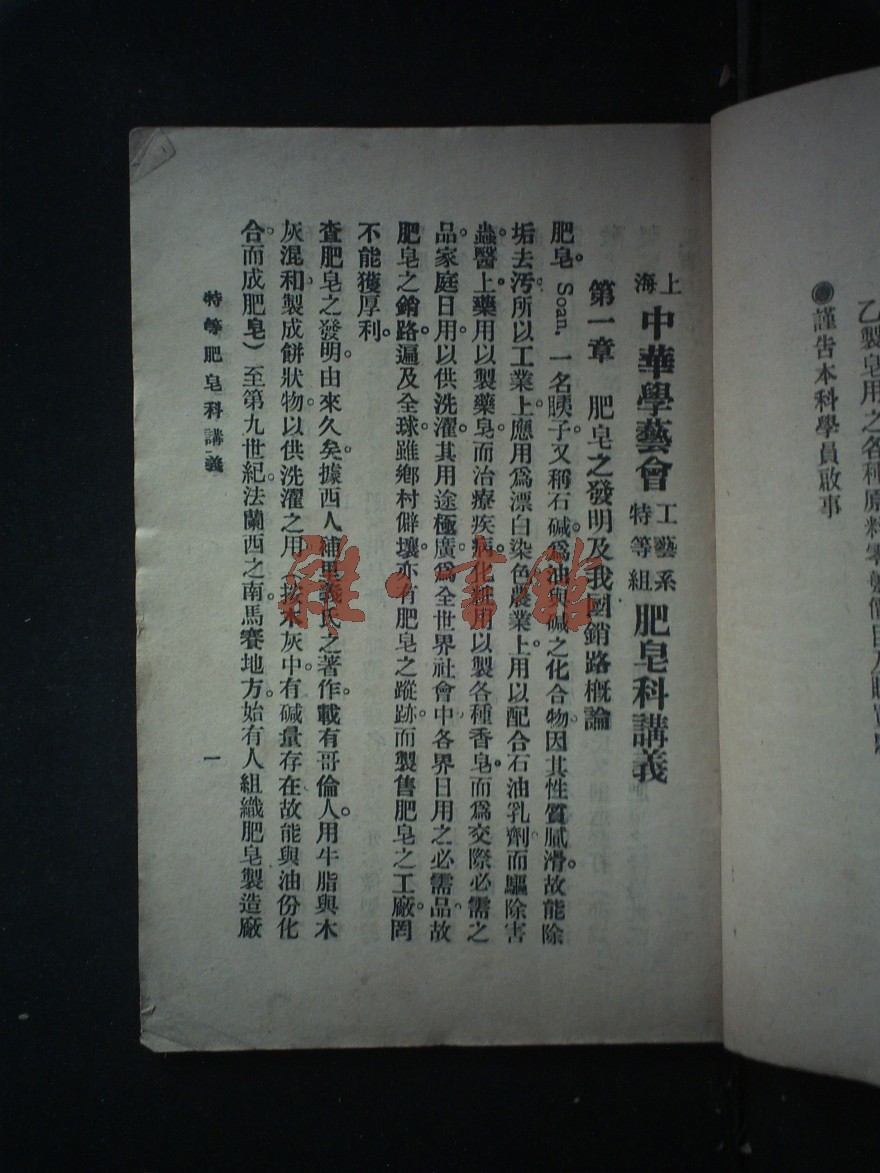 乙製皂用之各種原料零
●謹告本科學員啟事
上海中華學藝會工藝系特等組肥皂科講義
第一章　肥皂之發明及我國銷路概論
肥皂。Soan.一名胰子。又稱石碱。爲油與碱之化合物。因其性質膩滑。故能除
垢去汚。所以工業上。應用爲漂白染色。農業上。用以配合石油乳劑。而驅除害
蟲。醫上。藥用以製藥皂。而治療疾病。化粧用以製各種香皂。而爲交際必需之
品。家庭日用。以供洗濯。其用途極廣。爲全世界社會中各界日用之必需品。故
肥皂之銷路。遍及全球。雖鄉村僻壤。亦有肥皂之蹤跡。而製售肥皂之工廠。罔
不能獲厚利。
查肥皂之發明。由來久矣。據西人補里義氏之著作。載有哥倫人。用牛脂與木
灰混和。製成餅狀物。以供洗濯之用。按木灰中。有碱量存在。故能與油份化
合。而成肥皂）至第九世紀。法蘭西之南。馬賽地方。始有人組織肥皂製造廠
特等肥皂科講義
一
雜·書館